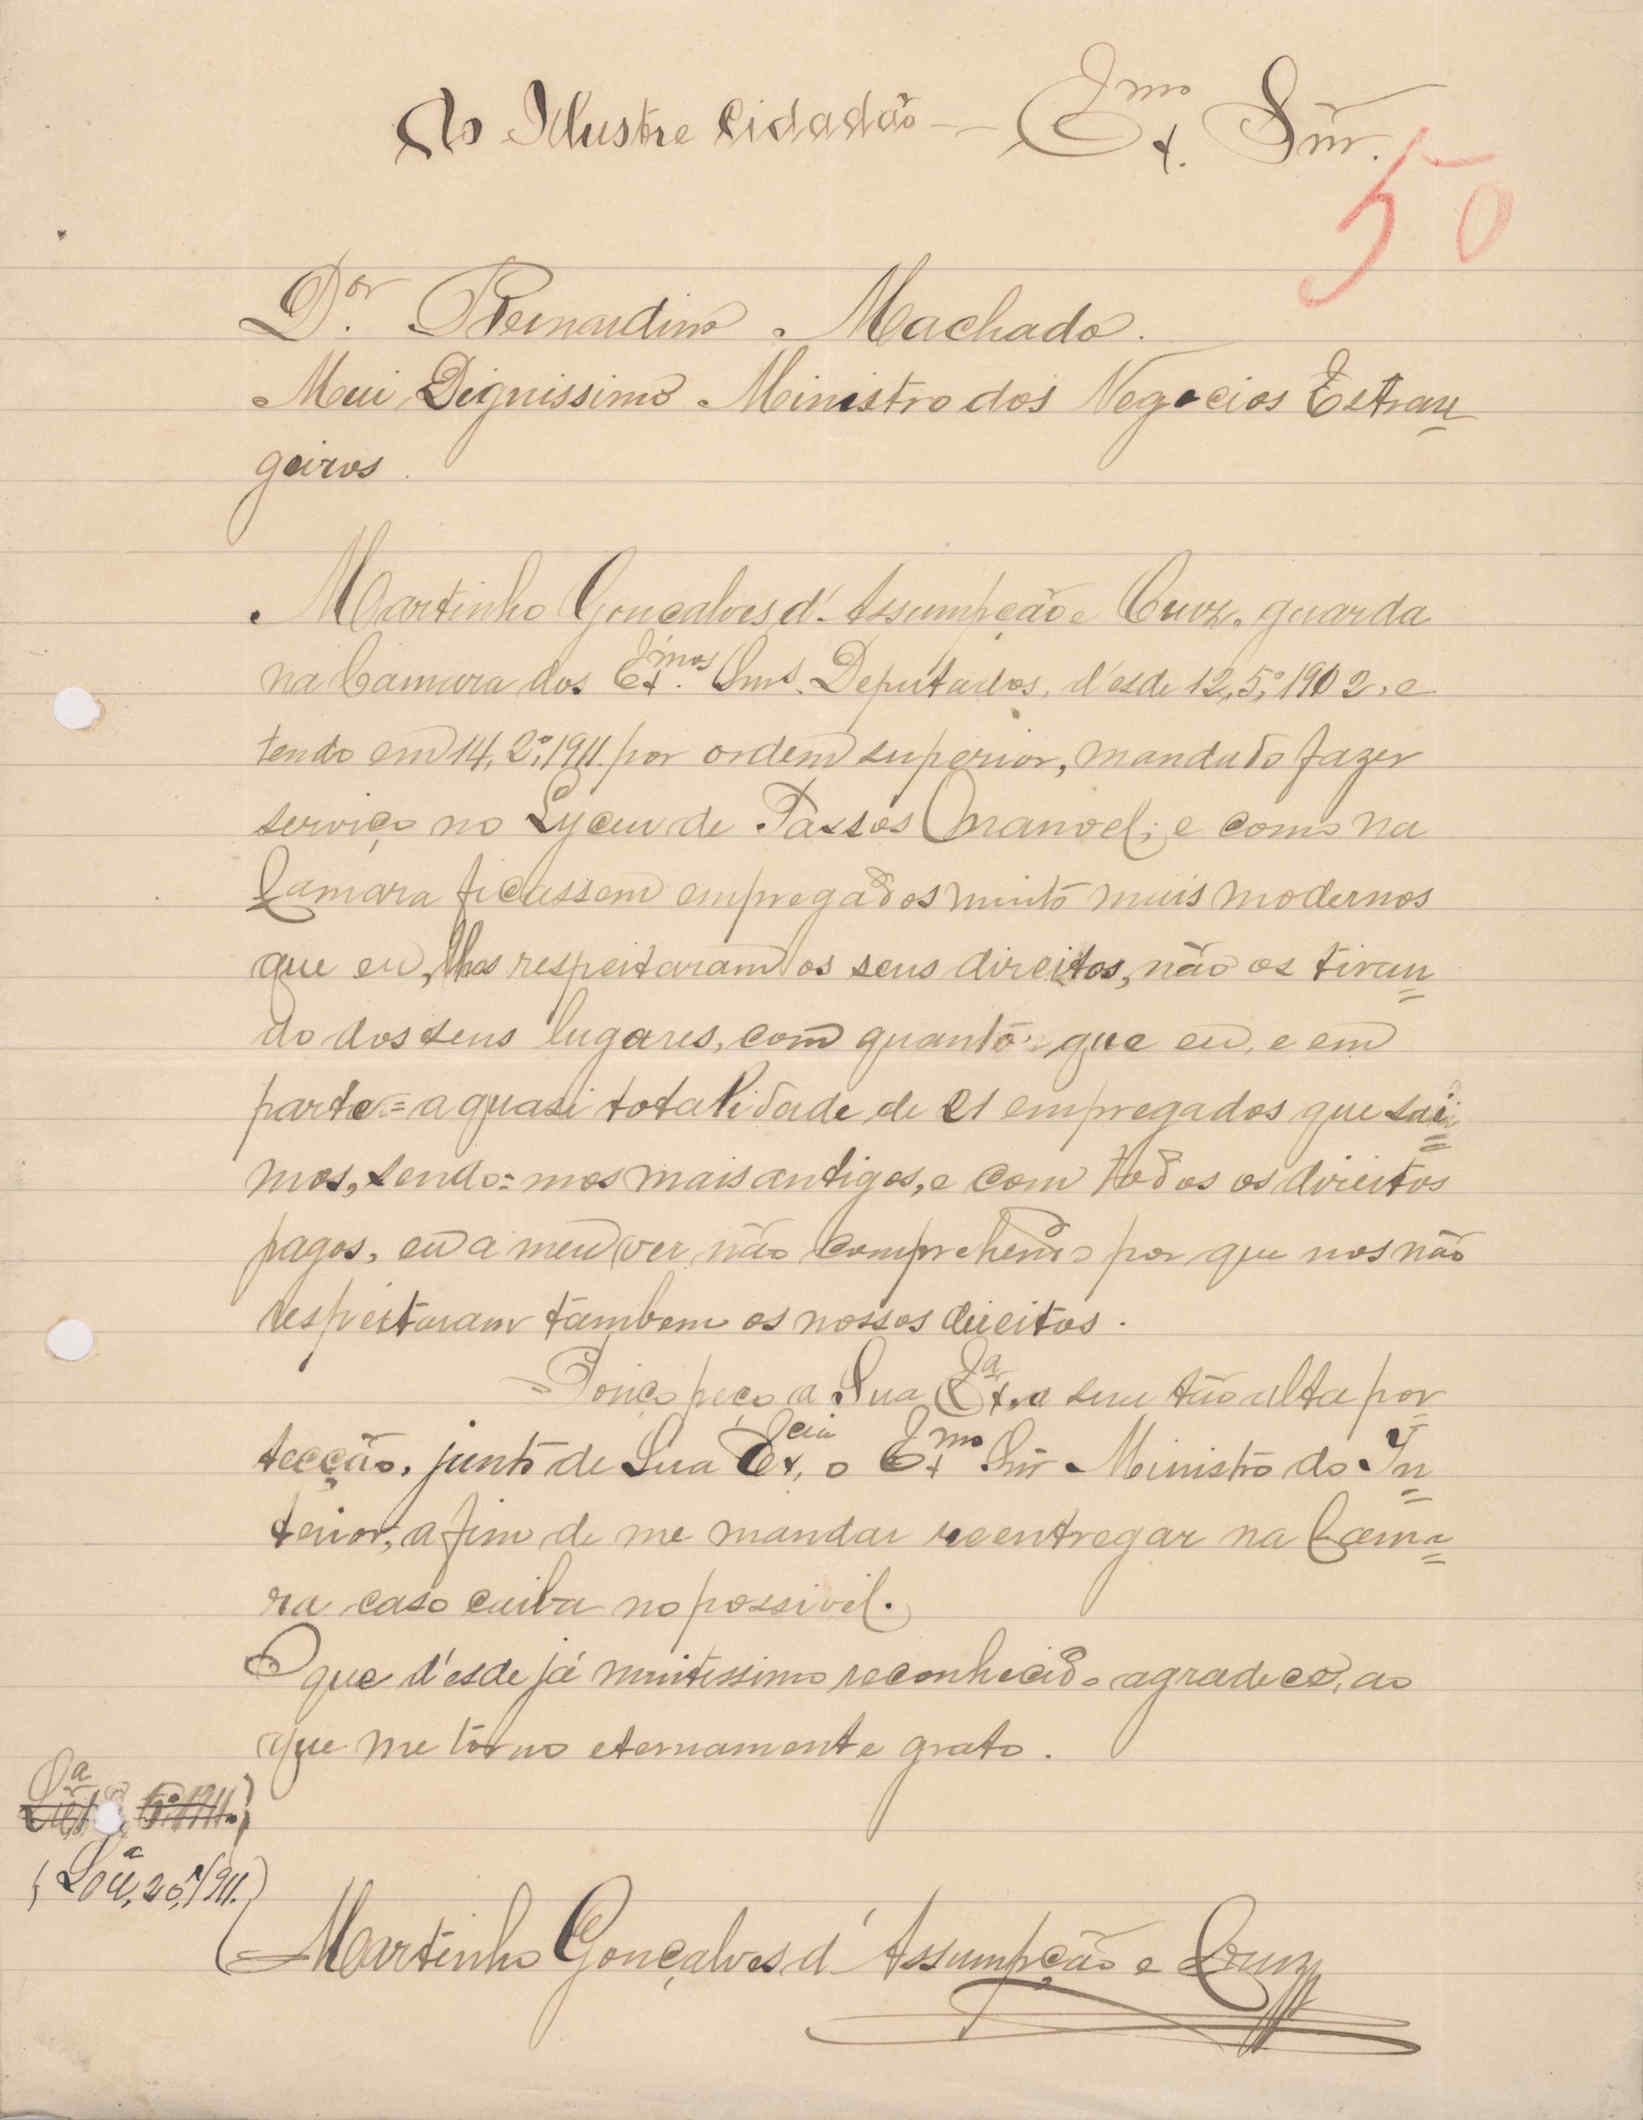 Ao Illustre Cidadão — Ex.mo Snr.
50
D.or Bernardino Machado.
Mui Dignissimo Ministro dos Negocios Estran=
geiros.
Martinho Gonçalves d'Assumpção e Cruz, guarda
na Camara dos Ex.mos Snrs. Deputados, d'esde 12, 5.º 1902, e
tendo em 14, 2.º, 1911. por ordem superior, mandado fazer
serviço no Lyceu de Passos Manoel; e como na
Camara ficassem empregados muito mais modernos
que eu, lhes respeitaram os seus direitos, não os tiran=
do dos seus lugares, com quanto que eu, e em
parte = a quasi totalidade de 21 empregados que sai=
mos, sendo=mos mais antigos, e com todos os direitos
pagos, eu a meu ver não comprehendo por que nos não
respeitaram tambem os nossos direitos.
peço a Sua Ex.a, a sua tão alta por=
tecção, junto de Sua Ex.cia, o Ex.mo Snr Ministro do In=
terior, a fim de me mandar reentregar na Cama=
ra caso caiba no possivil.
O que d'esde já muitissimo reconhecido agradeço, ao
que me torno eternamente grato.
5.º 1911.)
(Lx.a, 20, 1911.)
Martinho Gonçalves d'Assumpção e Cruz